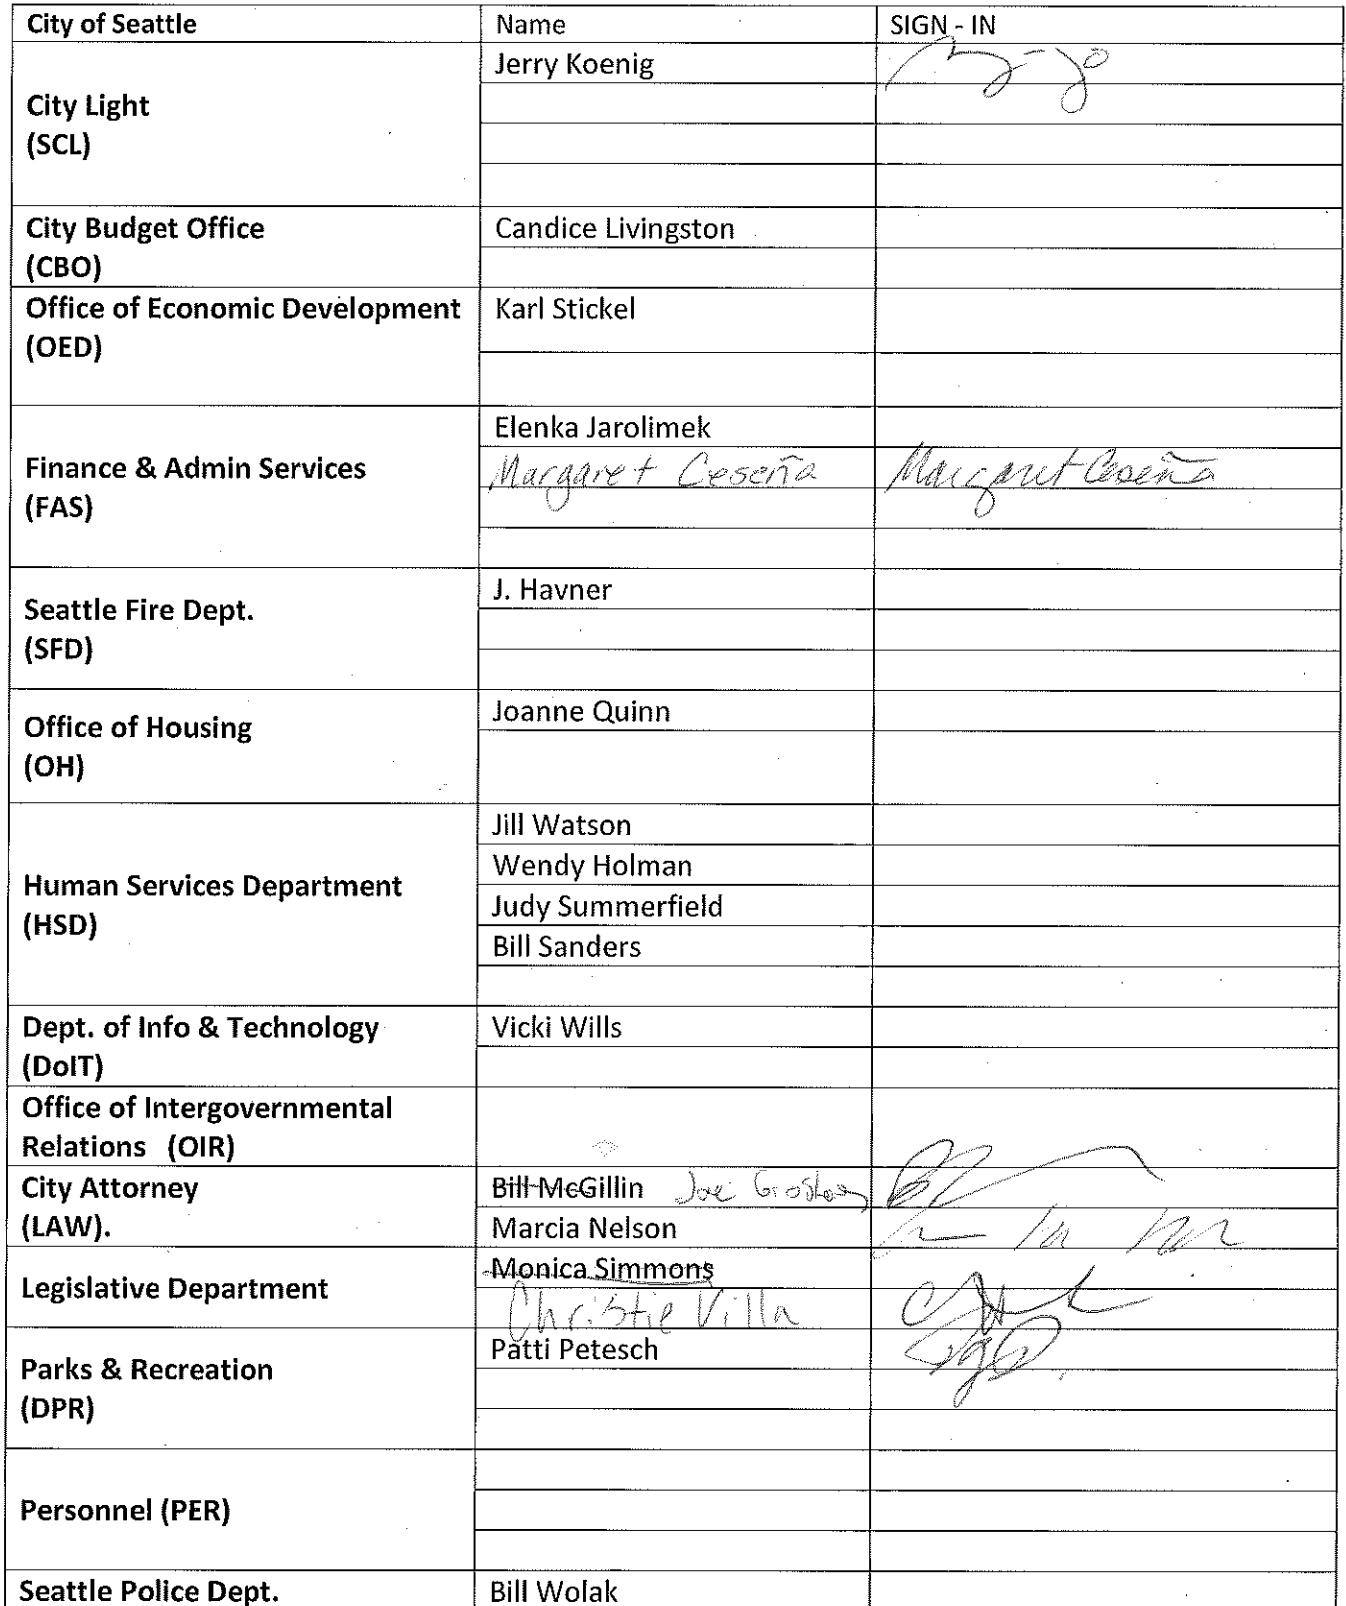 City of Seattle Name SIGN - IN
City Light
(SCL)
Jerry Koenig
City Budget Office
(CBO)
Candice Livingston
Office of Economic Development
(OED)
Karl Stickel
Finance & Admin Services
(FAS)
Elenka Jarolimek
Margaret Ceseña Margaret Ceseña
Seattle Fire Dept.
(SFD)
J. Havner
Office of Housing
(OH)
Joanne Quinn
Human Services Department
(HSD)
Jill Watson
Wendy Holman
Judy Summerfield
Bill Sanders
Dept. of Info & Technology
(DoIT)
Vicki Wills
Office of Intergovernmental
Relations (OIR)
City Attorney
(LAW).
Bill McGillin Joe
Marcia Nelson
Legislative Department
Monica Simmons
Christie Villa
Parks & Recreation
(DPR)
Patti Petesch
Personnel (PER)
Seattle Police Dept.
Bill Wolak